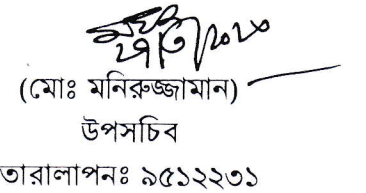 (মোঃ মনিরুজ্জামান)
উপসচিব
তারালাপনঃ ৯৫১২২৩১